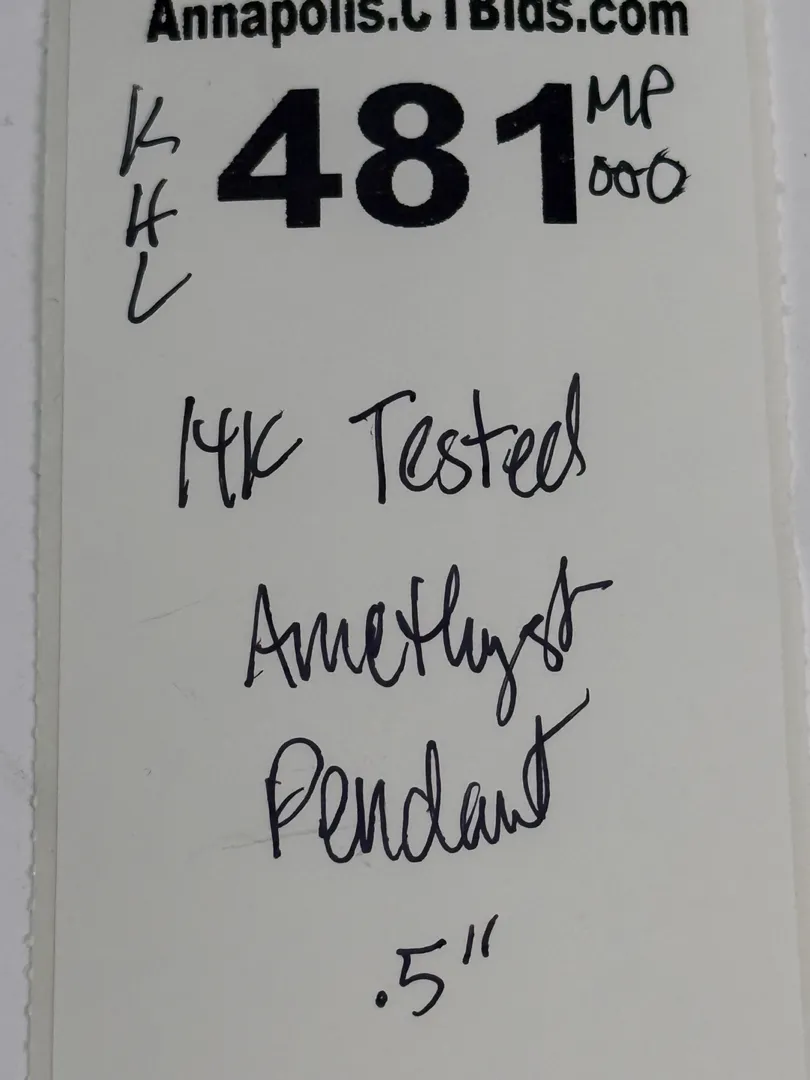 Annapolis.CTBids.com
K 481 MP
H 000
L
14K Tested
Amethyst
Pendant
.5"